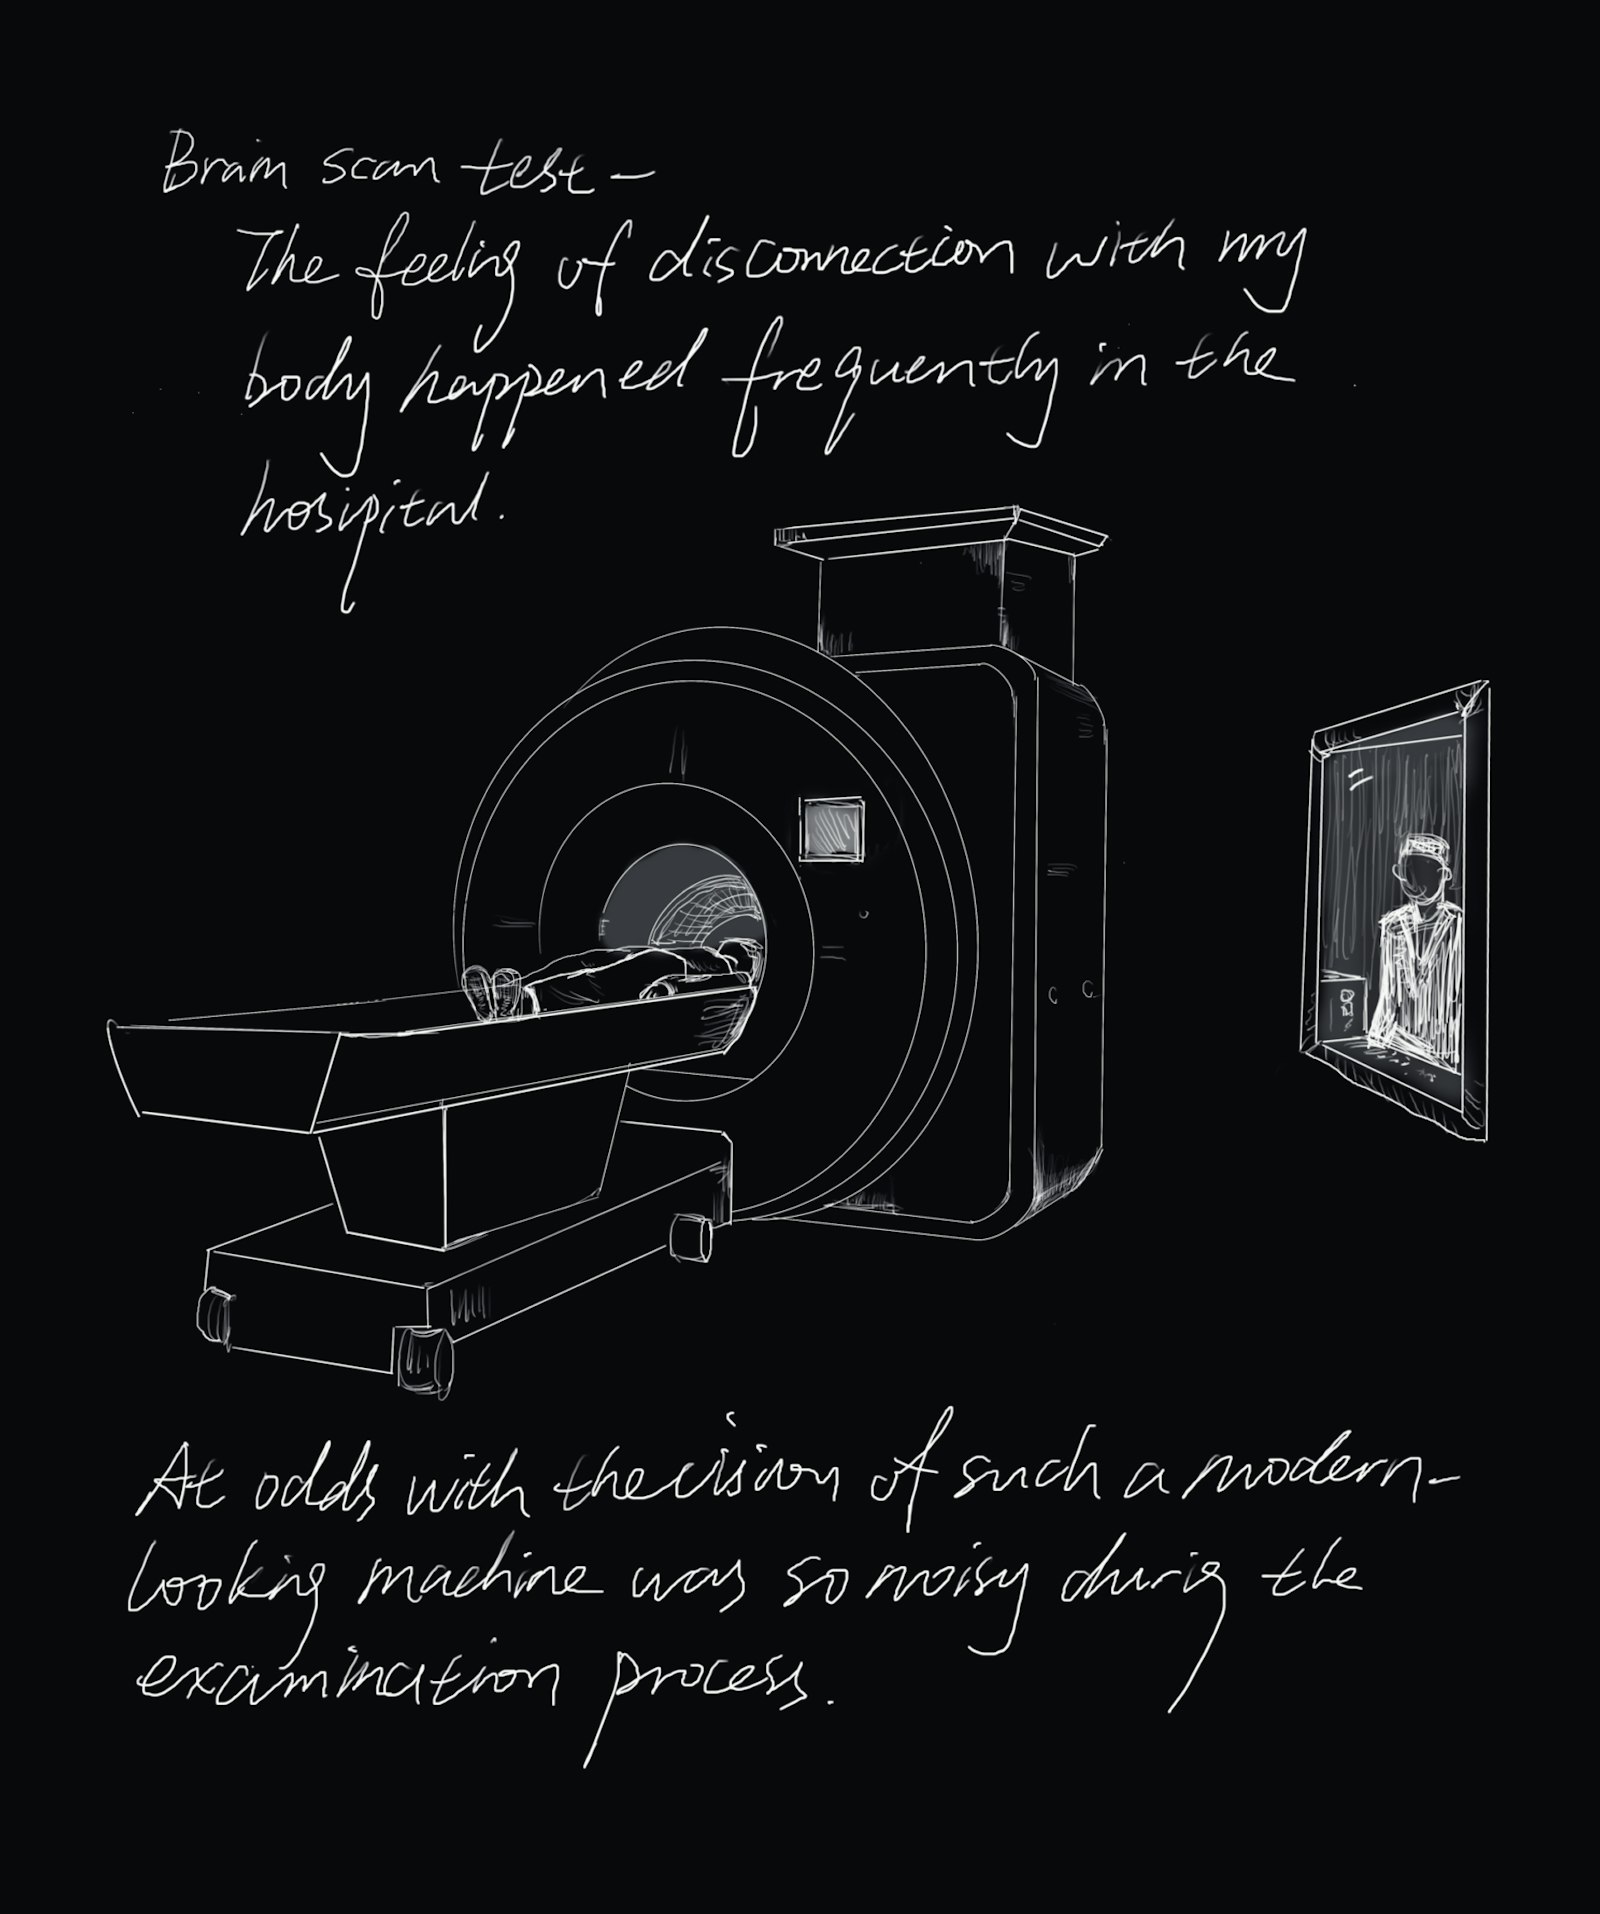 Brain scan test –
The feeling of disconnection with my
body happened frequently in the
hosipital.
At odds with the vision of such a modern-
looking machine was so noisy durig the
examination process.